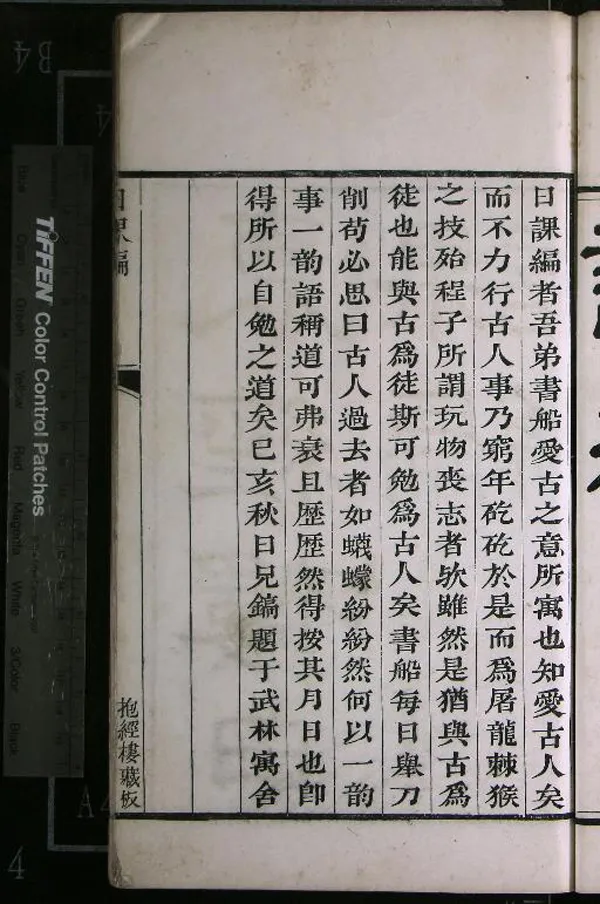 日課編者吾弟書船愛古之意所寓也知愛古人矣
而不力行古人事乃窮年矻矻於是而爲屠龍棘猴
之技殆程子所謂玩物喪志者欤雖然是猶與古爲
徒也能與古爲徒斯可勉爲古人矣書船每日舉刀
削苟必思曰古人過去者如蠛蠓紛紛然何以一韵
事一韵語稱道可弗衰且歷歷然得按其月日也卽
得所以自勉之道矣已亥秋日兄鎬題于武林寓舍
日課編
抱經樓藏板
TIFFEN Color Control Patches
Blue
Cyan
Green
Yellow
Red
Magenta
White
3/Color
Black
B4
A4
4